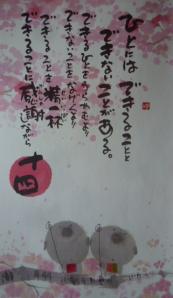 ひとには できることと
できないことがある。
できるひとをうらやむより
できないことをなげくより
できることを精一杯
できることに感謝しながら
十四